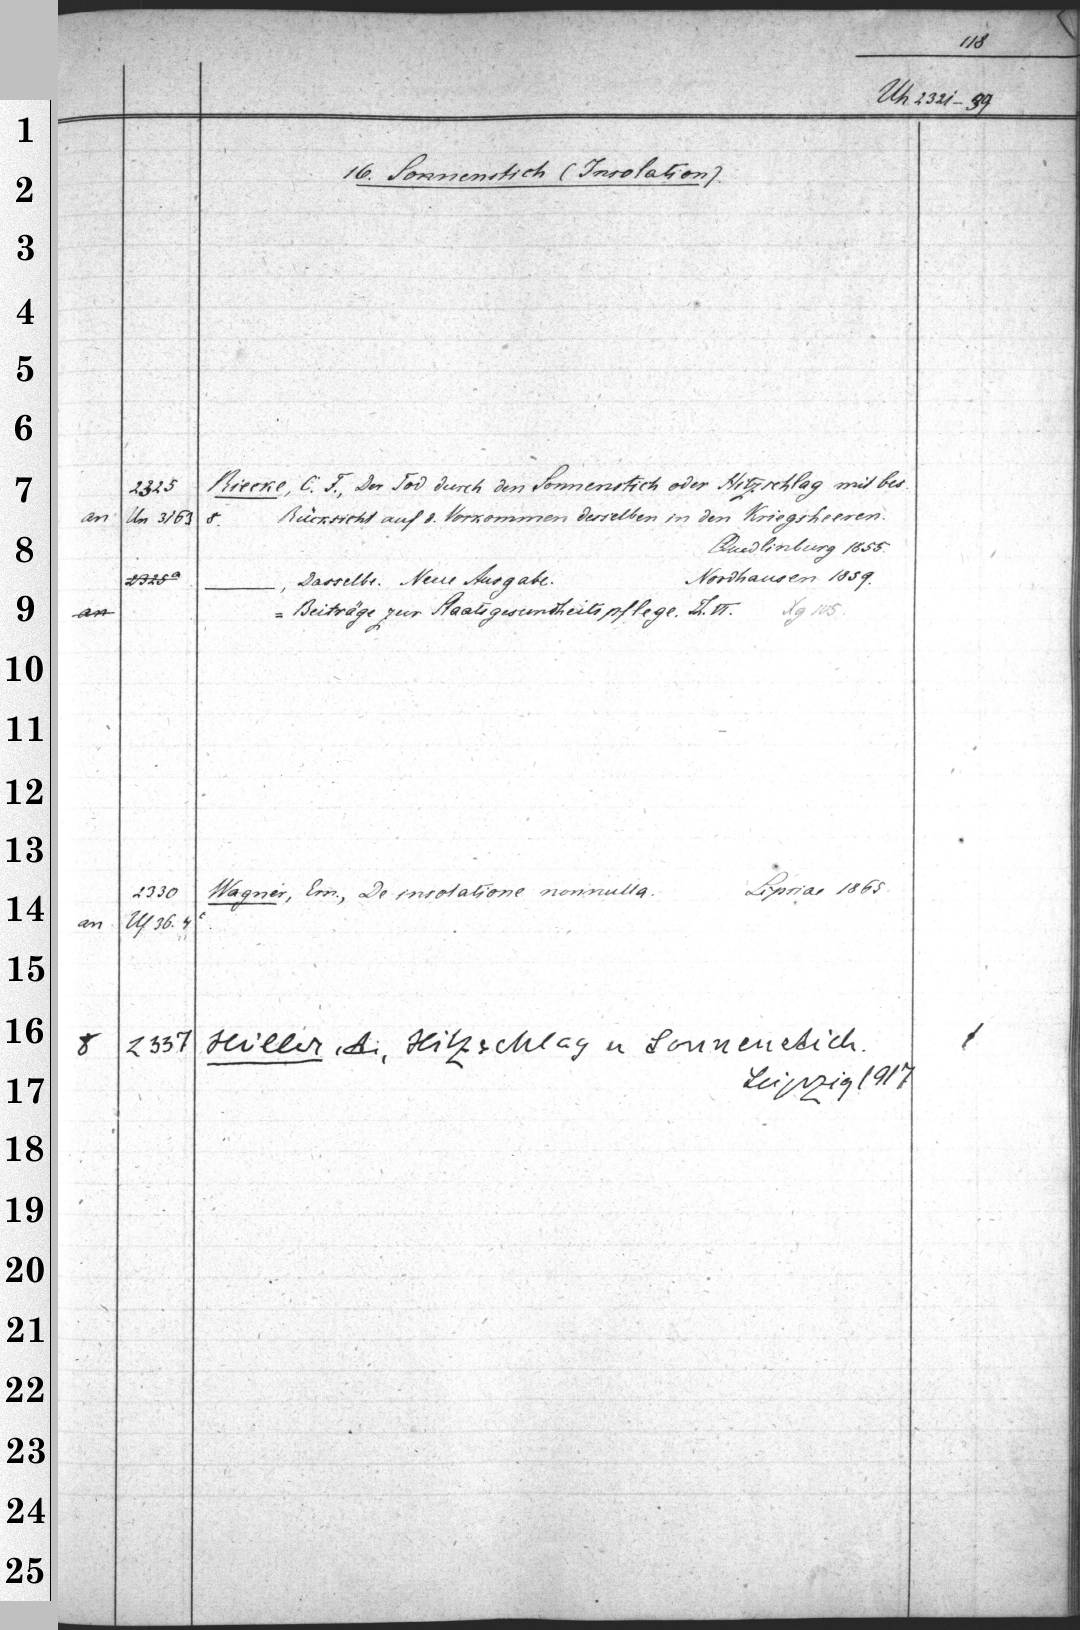 118
Uh 2321-39
16. Sonnenstich (Insolation).
2325 Riecke, C. F., Der Tod durch den Sonnenstich oder Hitzschlag mit bes.
an Un 3163 8. Rücksicht auf d. Vorkommen desselben in den Kriegsheeren.
Quedlinburg 1855.
2325a ———, Dasselbe. Neue Ausgabe. Nordhausen 1859.
an = Beiträge zur Staatsgesundheitspflege. Th. VI. Xg 105.
2330 Wagner, Em., De insolatione nonnulla. Lipsiae 1865.
an Uf 36. 4
8 2337 Hiller, A., Hitzschlag u Sonnenstich. 1
Leipzig 1917
1
2
3
4
5
6
7
8
9
10
11
12
13
14
15
16
17
18
19
20
21
22
23
24
25